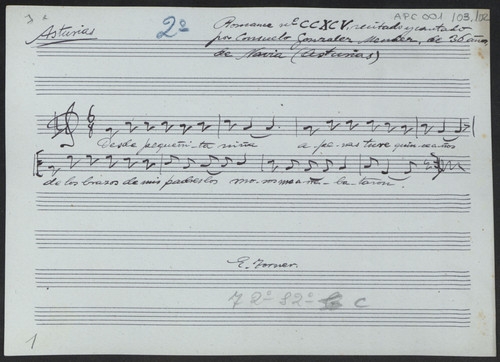 3ª
Asturias
2º
APC 001 / 03 / 02
Romance nº CCXCV, recitado y cantado
por Consuelo Gonzalez Mendez, de 36 años,
de Navia (Asturias)
6
8
Desde pequeñita niña a penas tuve quince años
de los brazos de mis padres los moros me
E. Torner
7 2º 82º C
1